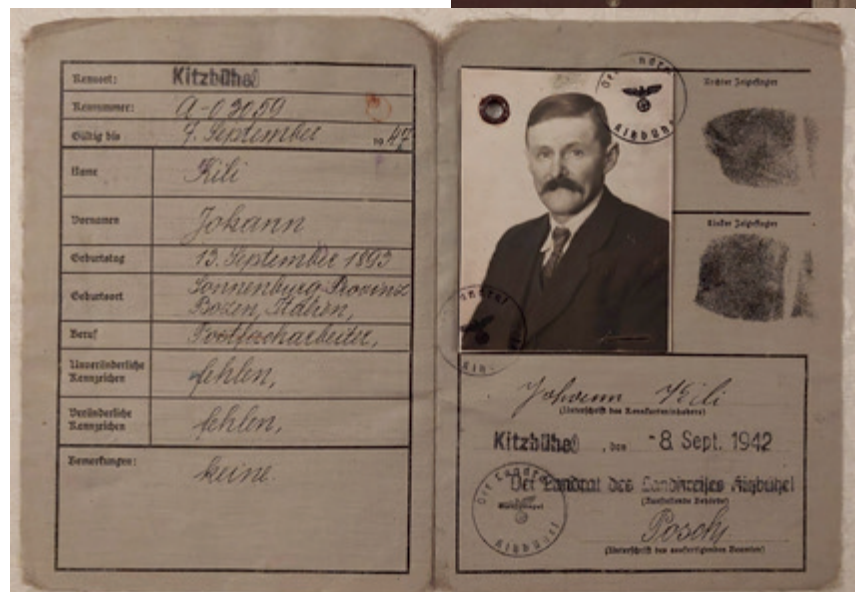 Kennort: Kitzbühel
Kennummer: A-03059
Gültig bis 7. September 1947
Name Kili
Vornamen Johann
Geburtstag 13. September 1893
Geburtsort Sonnenburg Provinz
Bozen, Italien,
Beruf
Unveränderliche
Kennzeichen fehlen,
Veränderliche
Kennzeichen fehlen,
Bemerkungen: keine.
Der Landrat
Kitzbühel
Rechter Zeigefinger
Linker Zeigefinger
Der Landrat
Kitzbühel
Johann Kili
(Unterschrift des Kennkarteninhabers)
Kitzbühel, den -8. Sept. 1942
Der Landrat des Landkreises Kitzbühel
(Ausstellende Behörde)
Der Landrat
Kitzbühel
Posch
(Unterschrift des ausfertigenden Beamten)